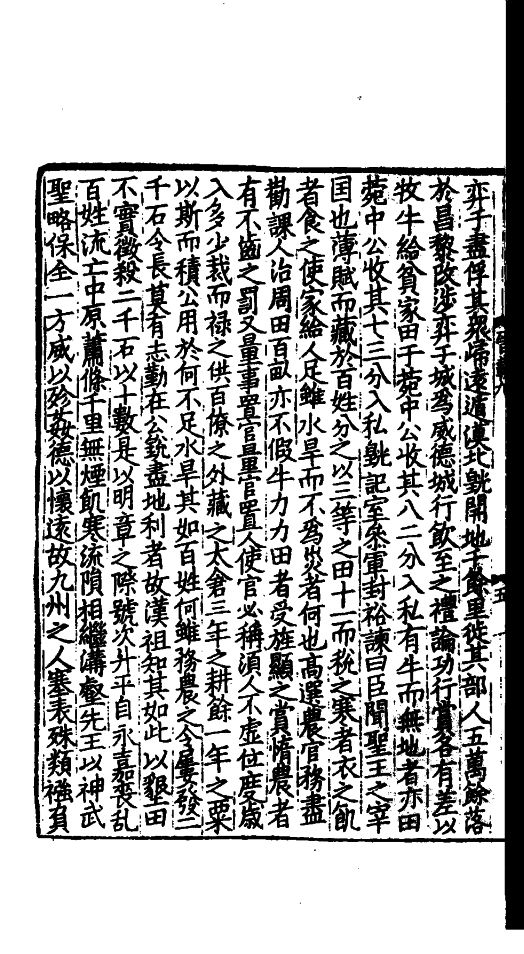 弈于盡俘其衆歸遠遁漠北皝開地千餘里徙其部人五萬餘落
於昌黎改涉弈于城爲威德城行飲至之禮論功行賞各有差以
牧牛給貧家田于苑中公收其八二分入私有牛而無地者亦田
苑中公收其七三分入私皝記室叅軍封裕諫曰臣聞聖王之宰
国也薄賦而藏於百姓分之以三等之田十一而稅之寒者衣之飢
者食之使家給人足雖水旱而不爲災者何也高選農官務盡
勸課人治周田百畝亦不假牛力力田者受旌顯之賞惰農者
有不齒之罰又量事置官量官置人使官必稱湏人不虛位度歲
入多少裁而禄之供百僚之外藏之太倉三年之耕餘一年之粟
以斯而積公用於何不足水旱其如百姓何雖務農之令屢發二
千石令長莫有志勤在公銳盡地利者故漢祖知其如此以墾田
不實徵殺二千石以十數是以明章之際號次升平自永嘉喪亂
百姓流亡中原蕭條千里無煙飢寒流隕相繼溝壑先王以神武
聖略保全一方威以殄姦德以懷遠故九州之人塞表殊類襁負